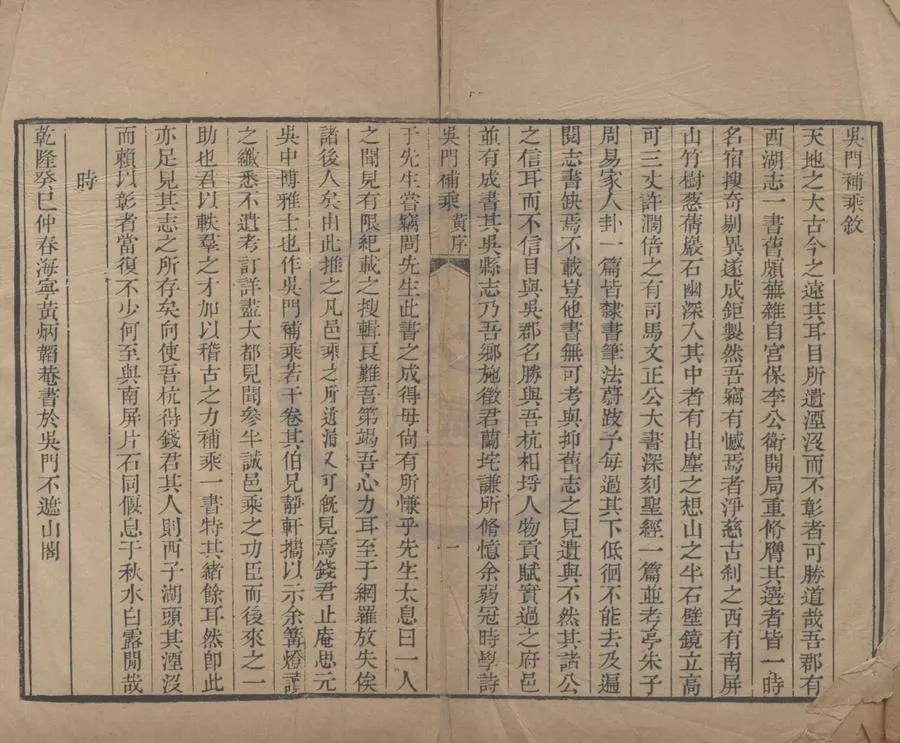 吳門補乘敘
天地之大古今之遠其耳目所遺湮沒而不彰者可勝道哉吾郡有
西湖志一書舊頗蕪雜自宮保李公衛開局重脩膺其選者皆一時
名宿搜奇剔異遂成鉅製然吾竊有憾焉者淨慈古刹之西有南屏
山竹樹蔥蒨巖石幽深入其中者有出塵之想山之半石壁鏡立高
可三丈許潤倍之有司馬文正公大書深刻聖經一篇並考亭朱子
周易家人卦一篇皆隸書筆法蔚跂予每過其下低徊不能去及遍
閱志書缺焉不載豈他書無可考與抑舊志之見遺與不然其諸公
之信耳而不信目與吳郡名勝與吾杭相埓人物貢賦實過之府邑
並有成書其吳縣志乃吾鄉施徵君蘭垞謙所脩憶余弱冠時學詩
吳門補乘 黃序 一
于先生嘗竊問先生此書之成得毋尙有所慊乎先生太息曰一人
之聞見有限紀載之搜輯良難吾第竭吾心力耳至于網羅放失俟
諸後人矣由此推之凡邑乘之所遺漏又可概見焉錢君止庵思元
吳中博雅士也作吳門補乘若干卷其伯兄靜軒攜以示余篝燈讀
之纖悉不遺考訂詳盡大都見聞參半誠邑乘之功臣而後來之一
助也君以軼羣之才加以稽古之力補乘一書特其緒餘耳然卽此
亦足見其志之所存矣向使吾杭得錢君其人則西子湖頭其湮沒
而賴以彰者當復不少何至與南屏片石同偃息于秋水白露閒哉
時
乾隆癸巳仲春海寧黃炳韜菴書於吳門不遮山閣